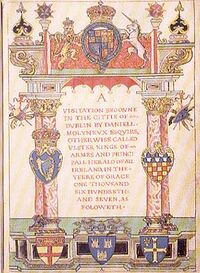 A
VISITATION BEGONNE
IN THE CITTIE OF
DUBLIN BY DANIELL
MOLYNEUX ESQUIER,
OTHERWISE CALLED
ULSTER KINGE OF
ARMES AND PRINCI
PALL HERALD OF ALL
IRELAND, IN THE
YEERE OF GRACE
ONE THOUSAND
SIX HUNDRETH
AND SEVEN, AS
FOLOWETH.